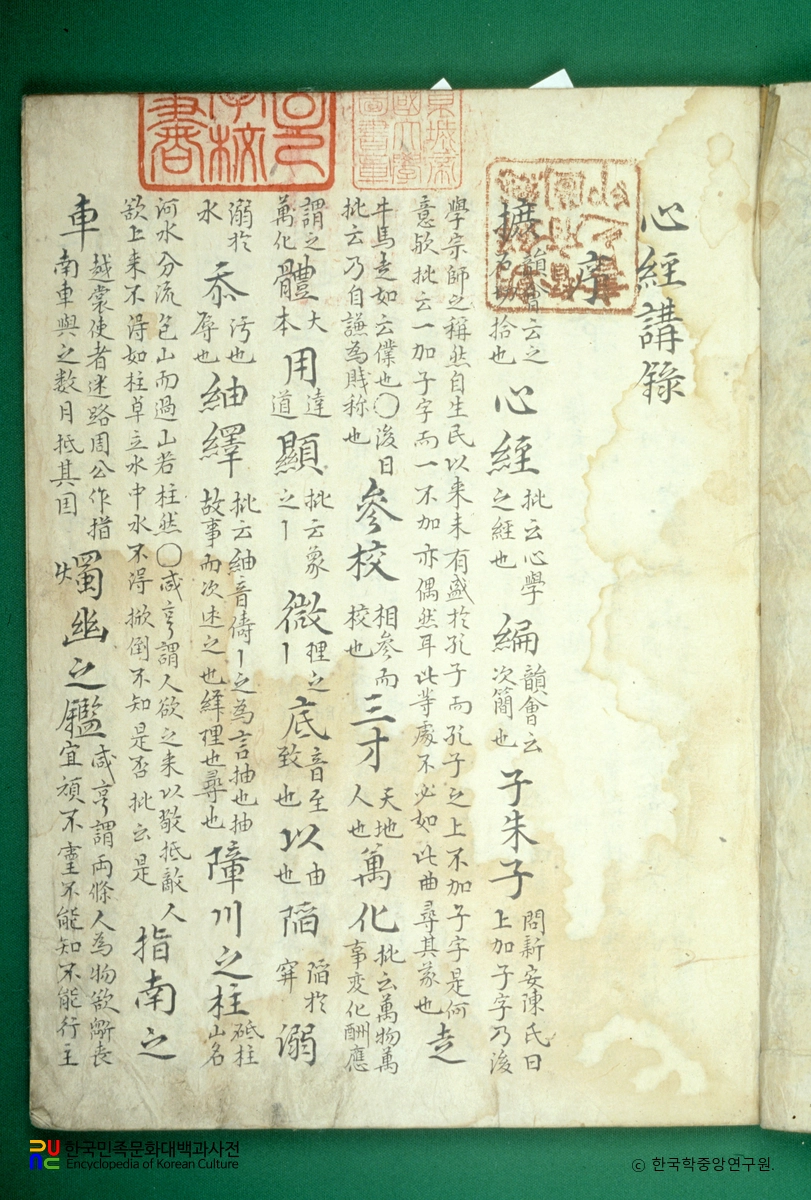 心經講錄
序
摭韻會云之石切拾也心經批云心學之經也編韻會云次簡也子朱子問新安陳氏曰上加子字乃後
學宗師之稱然自生民以来未有盛於孔子而孔子之上不加子字是何意欤批云一加子字而一不加亦偶然耳此等處不必如此曲尋其義也走
牛馬走如云僕也〇後日批云乃自謙為賤称也參校相參而校也三才天地人也萬化批云萬物萬事変化酬應
謂之萬化體大本用達道顯批云象之丨微理之丨底音至致也以由也陷陷於穽溺
溺於水忝汚也辱也紬繹批云紬音儔丨之為言抽也抽故事而次述之也繹理也尋也障川之柱砥柱山名
河水分流包山而過山若柱然〇咸亨謂人欲之来以敬抵敵人欲上来不得如柱卓立水中水不得掀倒不知是否批云是指南之
車越裳使者迷路周公作指南車與之数月抵其国燭幽之鑑咸亨謂兩條人為物欲所丧冥頑不靈不能知不能行主
京城帝國大學圖書章
한국민족문화대백과사전
Encyclopedia of Korean Culture
ⓒ 한국학중앙연구원.